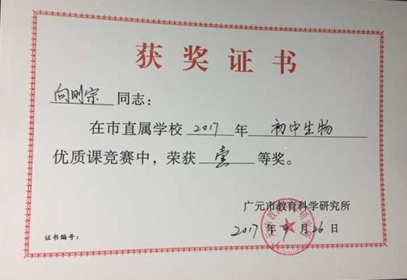 获奖证书
向刚宗 同志:
在市直属学校 2017 年 初中生物
优质课竞赛中,荣获 壹 等奖。
广元市教育科学研究所
2017 年 月 26 日
证书编号: